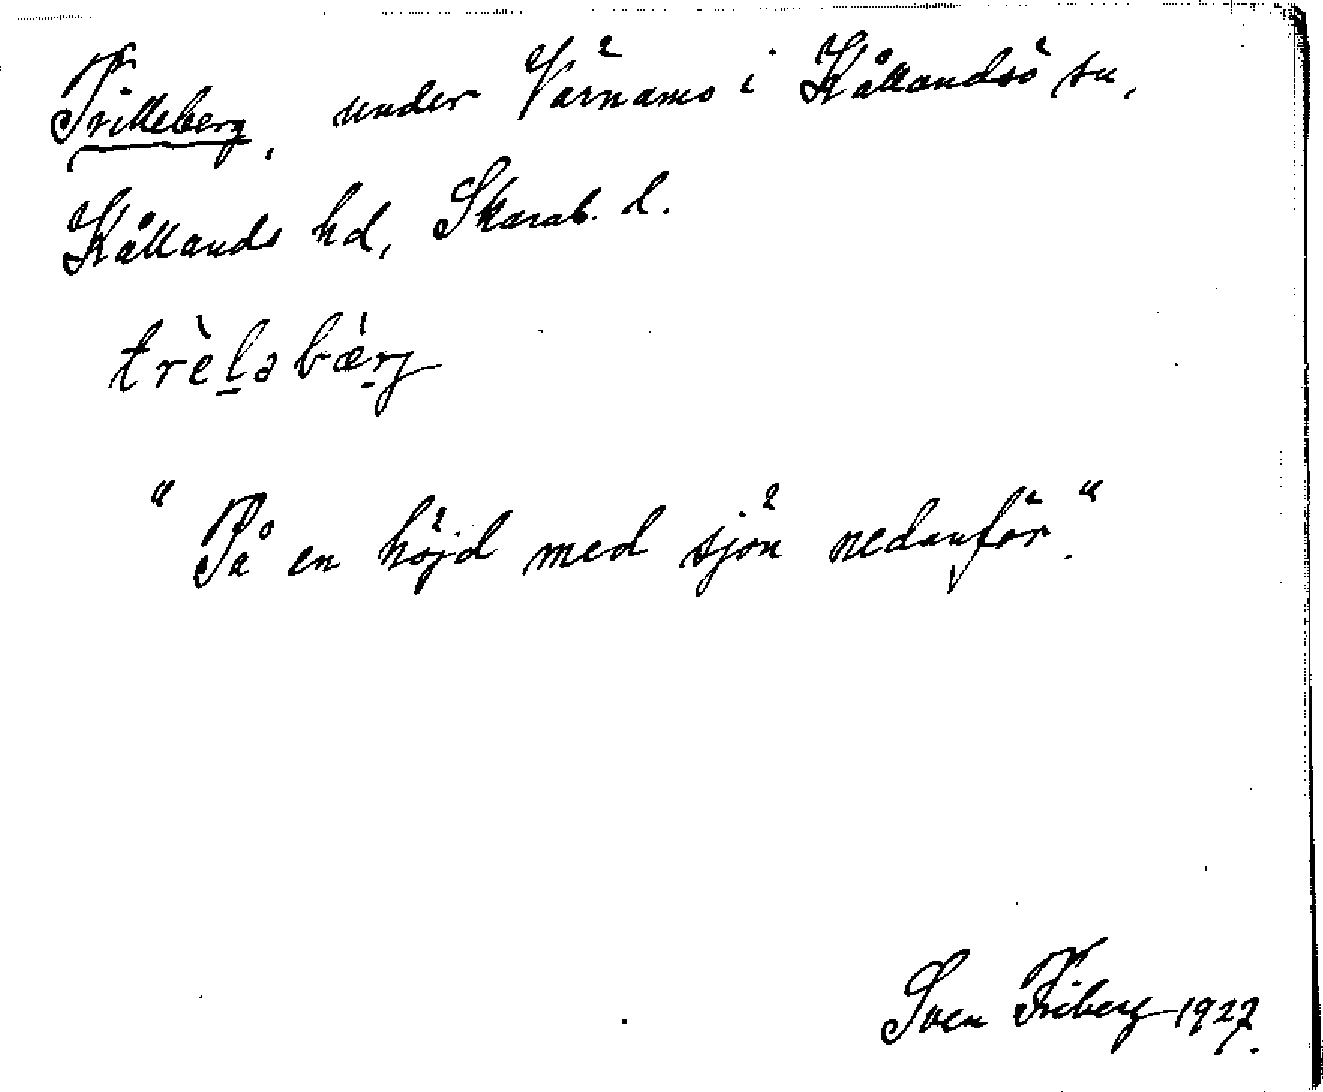 Trilleberg, under Värnamo i Kållandsö sn,
Kållands hd, Skarab. l.
trèləbærj
"På en höjd med sjön nedanför."
Sven Friberg 1927.